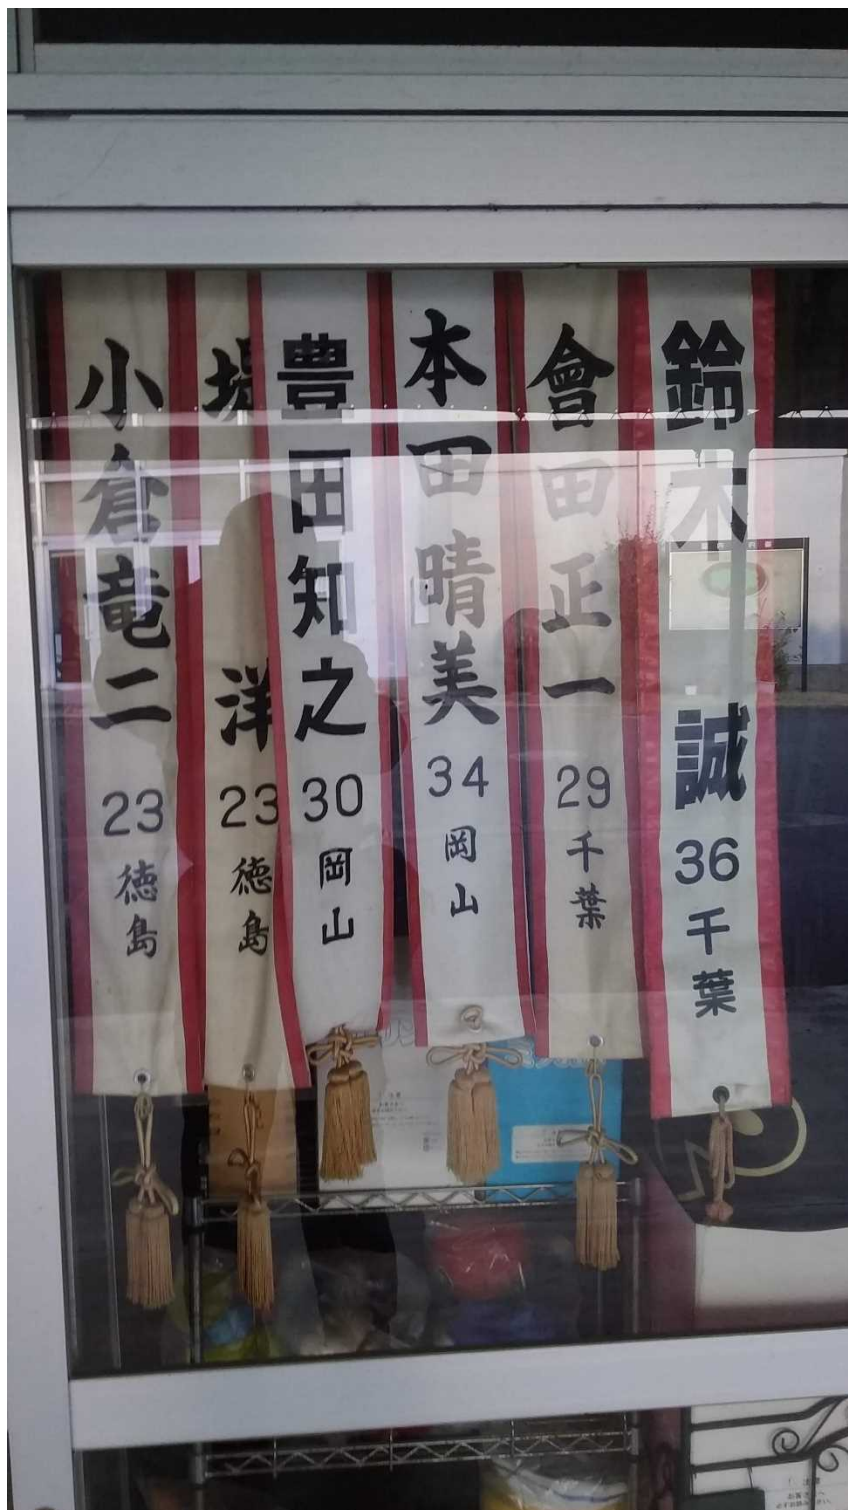 鈴木 誠 36 千葉
會田正一 29 千葉
本田晴美 34 岡山
豊田知之 30 岡山
堤 洋 23 徳島
小倉竜二 23 徳島